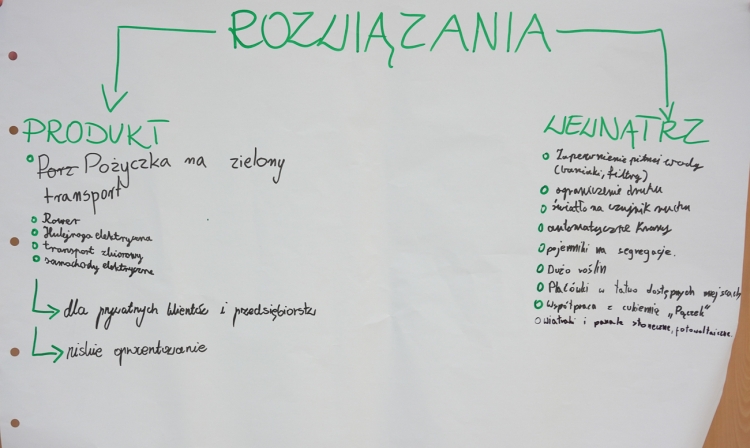 ROZWIĄZANIA
PRODUKT
Porz Pożyczka na zielony
transport
Rower
Hulajnoga elektryczna
transport zbiorowy
samochody elektryczne
dla prywatnych klientów i przedsiębiorstw
niskie oprocentowanie
WEWNĄTRZ
Zapewnienie pitnej wody
(baniaki, filtry)
ograniczenie druku
światło na czujnik ruchu
automatyczne krany
pojemniki na segregację.
Dużo roślin
Placówki w łatwo dostępnych miejscach
Współpraca z cukiernią „Pączek"
wiatraki i panele słoneczne, fotowoltaiczne.